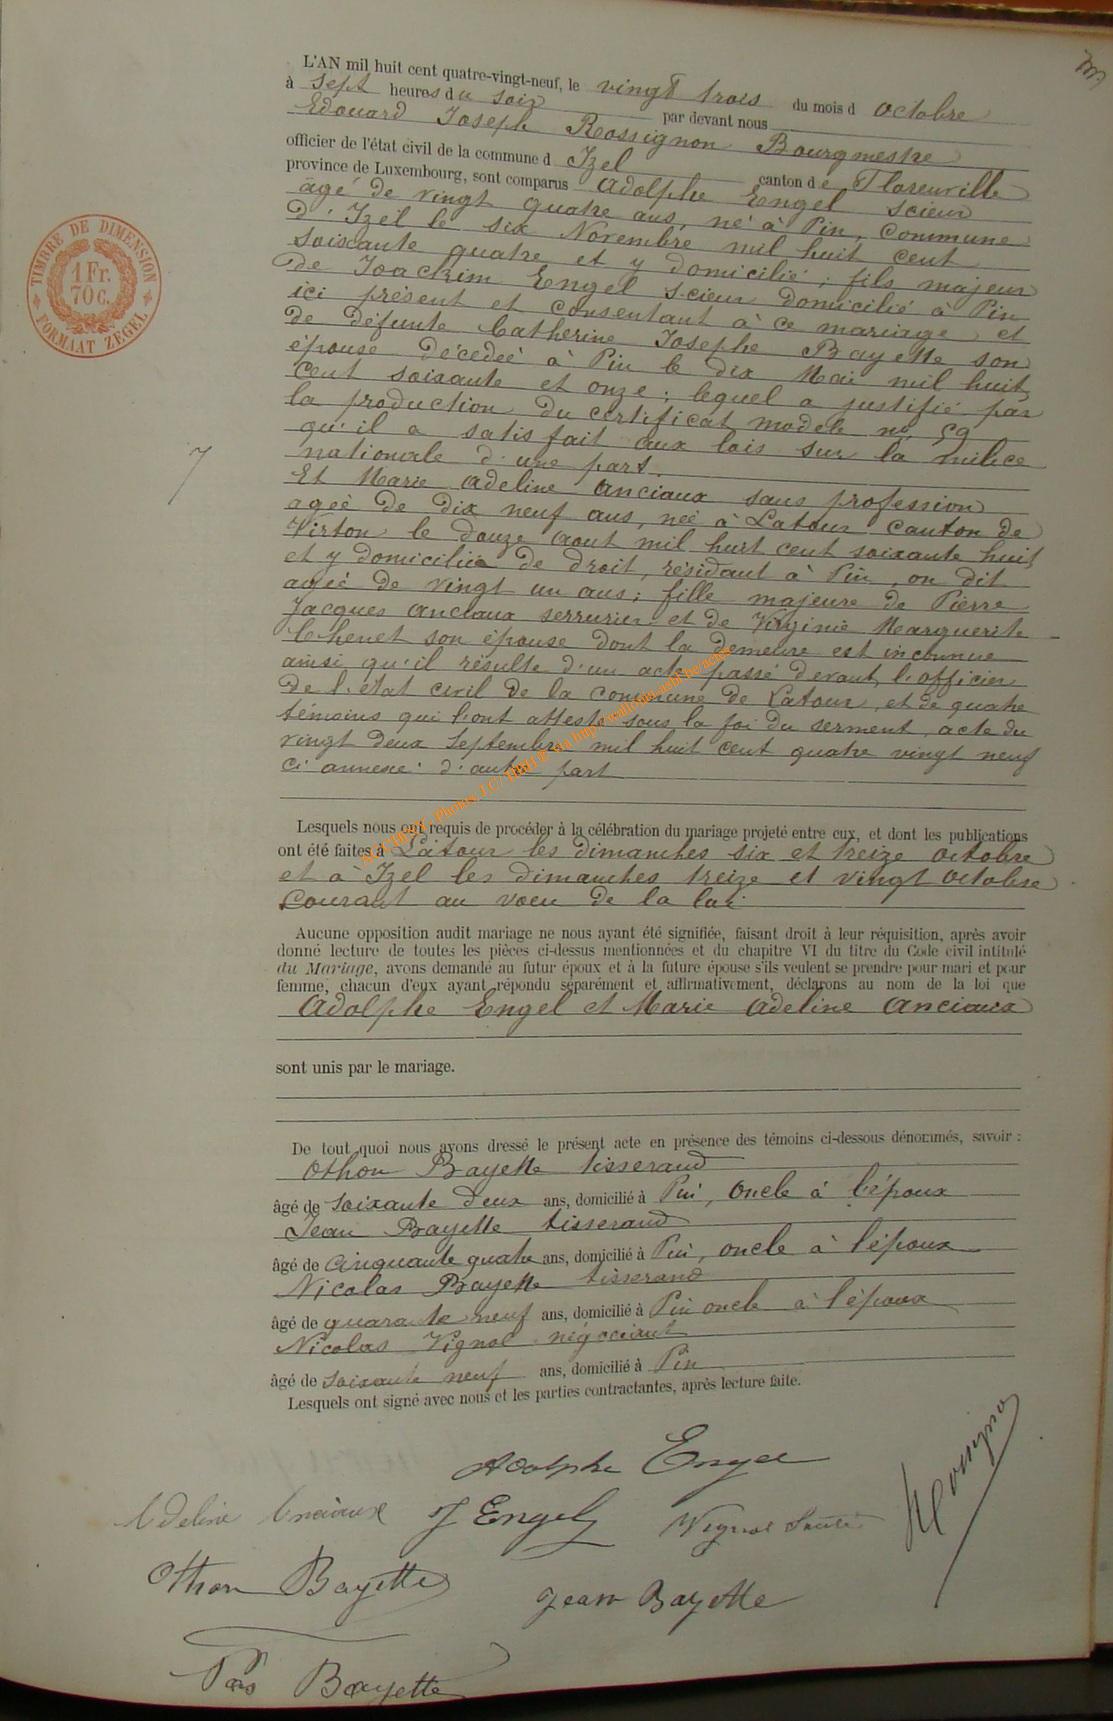 L'AN mil huit cent quatre-vingt-neuf, le vingt trois du mois d octobre
à sept heures du soir par devant nous
Edouard Joseph Rossignon Bourgmestre
officier de l'état civil de la commune d Izel canton de Florenville
province de Luxembourg, sont comparus Adolphe Engel scieur
âgé de vingt quatre ans, né à Pin, commune
d'Izel le six Novembre mil huit cent
soixante quatre et y domicilié ; fils majeur
de Joachim Engel scieur domicilié à Pin
ici présent et consentant à ce mariage et
de défunte Catherine Josephe Bayette son
épouse décédeé à Pin le dix Mai mil huit
cent soixante et onze ; lequel a justifié par
la production du certificat modèle no, 59
qu'il a satisfait aux lois sur la milice
nationale d'une part.
Et Marie Adeline Anciaux sans profession
ageé de dix neuf ans, neé à Latour canton de
Virton le douze aout mil huit cent soixante huit
et y domiciliée de droit, résidant à Pin, on dit
ageé de vingt un ans ; fille majeure de Pierre
Jacques Anciaux serrurier et de Virginie Marguerite
Chenet son épouse dont la demeure est inconnue
ainsi qu'il résulte d'un acte passé devant l'officier
de l'état civil de la commune de Latour, et de quatre
témoins qui l'ont attesté sous la foi du serment, acte du
vingt deux Septembre mil huit cent quatre vingt neuf
ci annexé d'autre part
Lesquels nous ont requis de procéder à la célébration du mariage projeté entre eux, et dont les publications
ont été faites à Latour les dimanches six et treize octobre
et à Izel les dimanches treize et vingt octobre
courant au voeu de la loi
Aucune opposition audit mariage ne nous ayant été signifiée, faisant droit à leur réquisition, après avoir
donné lecture de toutes les pièces ci-dessus mentionnées et du chapitre VI du titre du Code civil intitulé
du Mariage, avons demandé au futur époux et à la future épouse s'ils veulent se prendre pour mari et pour
femme, chacun d'eux ayant répondu séparément et affirmativement, déclarons au nom de la loi que
Adolphe Engel et Marie Adeline Anciaux
sont unis par le mariage.
De tout quoi nous avons dressé le présent acte en présence des témoins ci-dessous dénommés, savoir :
Othon Bayette tisserand
âgé de soixante deux ans, domicilié à Pin, oncle à l'époux
Jean Bayette tisserand
âgé de cinquante quatre ans, domicilié à Pin, oncle à l'époux
Nicolas Bayette tisserand
âgé de quarante neuf ans, domicilié à Pin oncle à l'époux
Nicolas Vignol négociant
âgé de soixante neuf ans, domicilié à Pin
Lesquels ont signé avec nous et les parties contractantes, après lecture faite.
Adolphe Engel
Adeline Anciaux J Engel Vignol
Rossignon
Othon Bayette Jean Bayette
Bayette
TIMBRE DE DIMENSION
1 Fr.
70 c.
FORMAAT ZEGEL
7